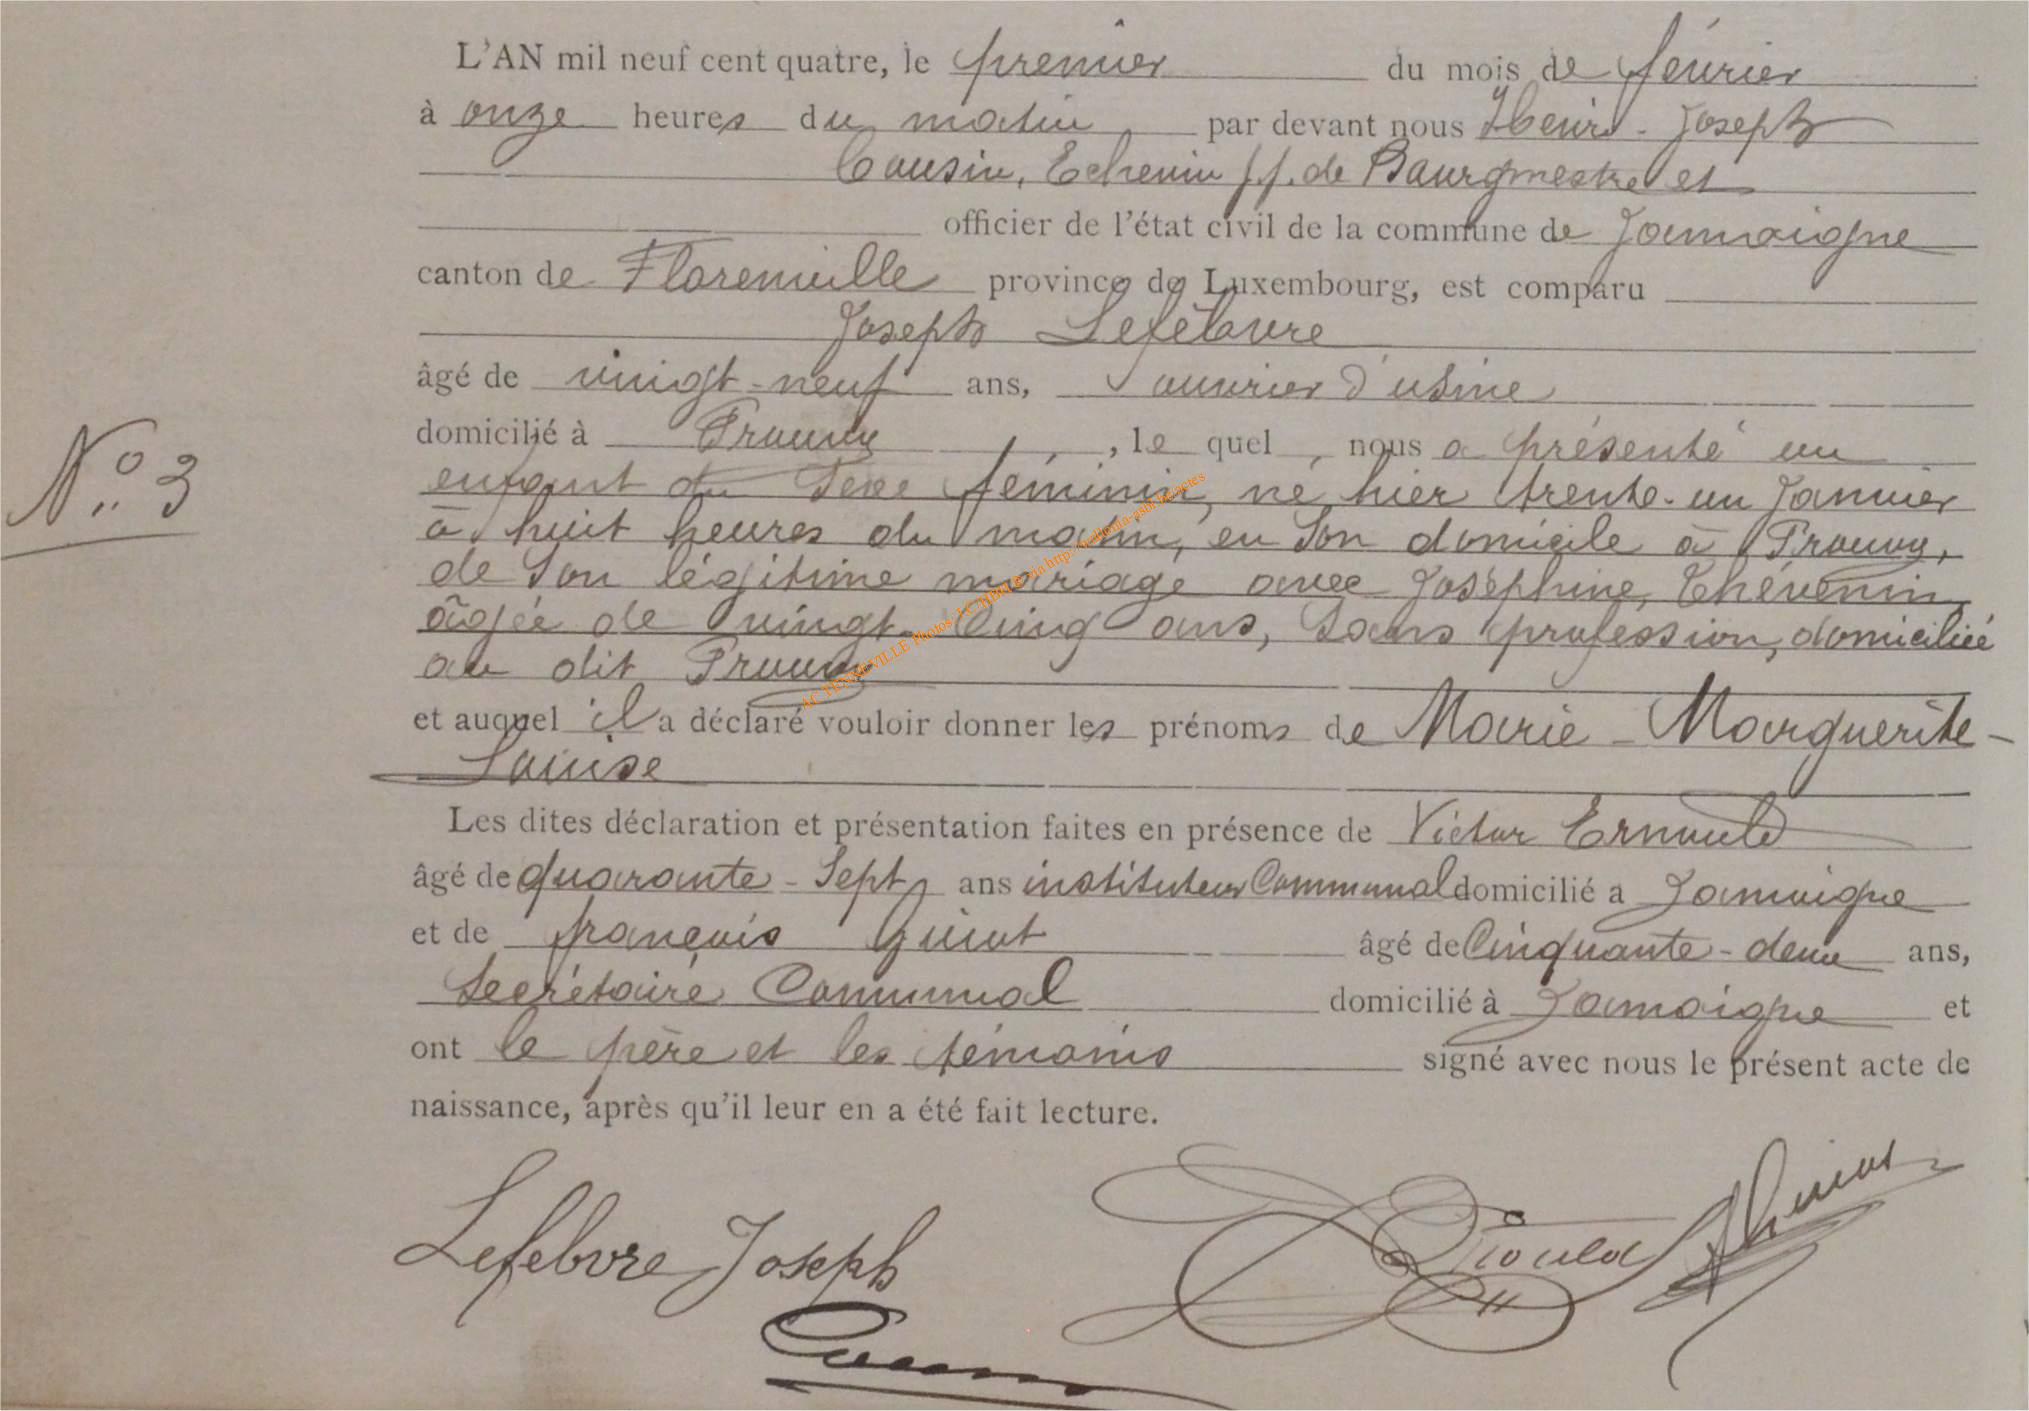 L'AN mil neuf cent quatre, le premier du mois de février
à onze heures du matin par devant nous Henri-Joseph
Cousin, Echevin f.f. de Bourgmestre et
officier de l'état civil de la commune de Jamoigne
canton de Florenville province de Luxembourg, est comparu
Joseph Lefebvre
âgé de vingt-neuf ans, ouvrier d'usine
domicilié à Prouvy, le quel, nous a présenté un
N° 3
enfant du sexe féminin, né hier trente-un Janvier
à huit heures du matin, en son domicile à Prouvy,
de son légitime mariage avec Joséphine Thévenin
âgée de vingt-cinq ans, sans profession, domiciliée
au dit Prouvy
et auquel il a déclaré vouloir donner les prénoms de Marie-Marguerite-
Louise
Les dites déclaration et présentation faites en présence de Victor Ernould
âgé de quarante-sept ans instituteur Communal domicilié a Jamoigne
et de françois Guiot âgé de Cinquante-deux ans,
Secrétaire Communal domicilié à Jamoigne et
ont le père et les témoins signé avec nous le présent acte de
naissance, après qu'il leur en a été fait lecture.
Lefebvre Joseph